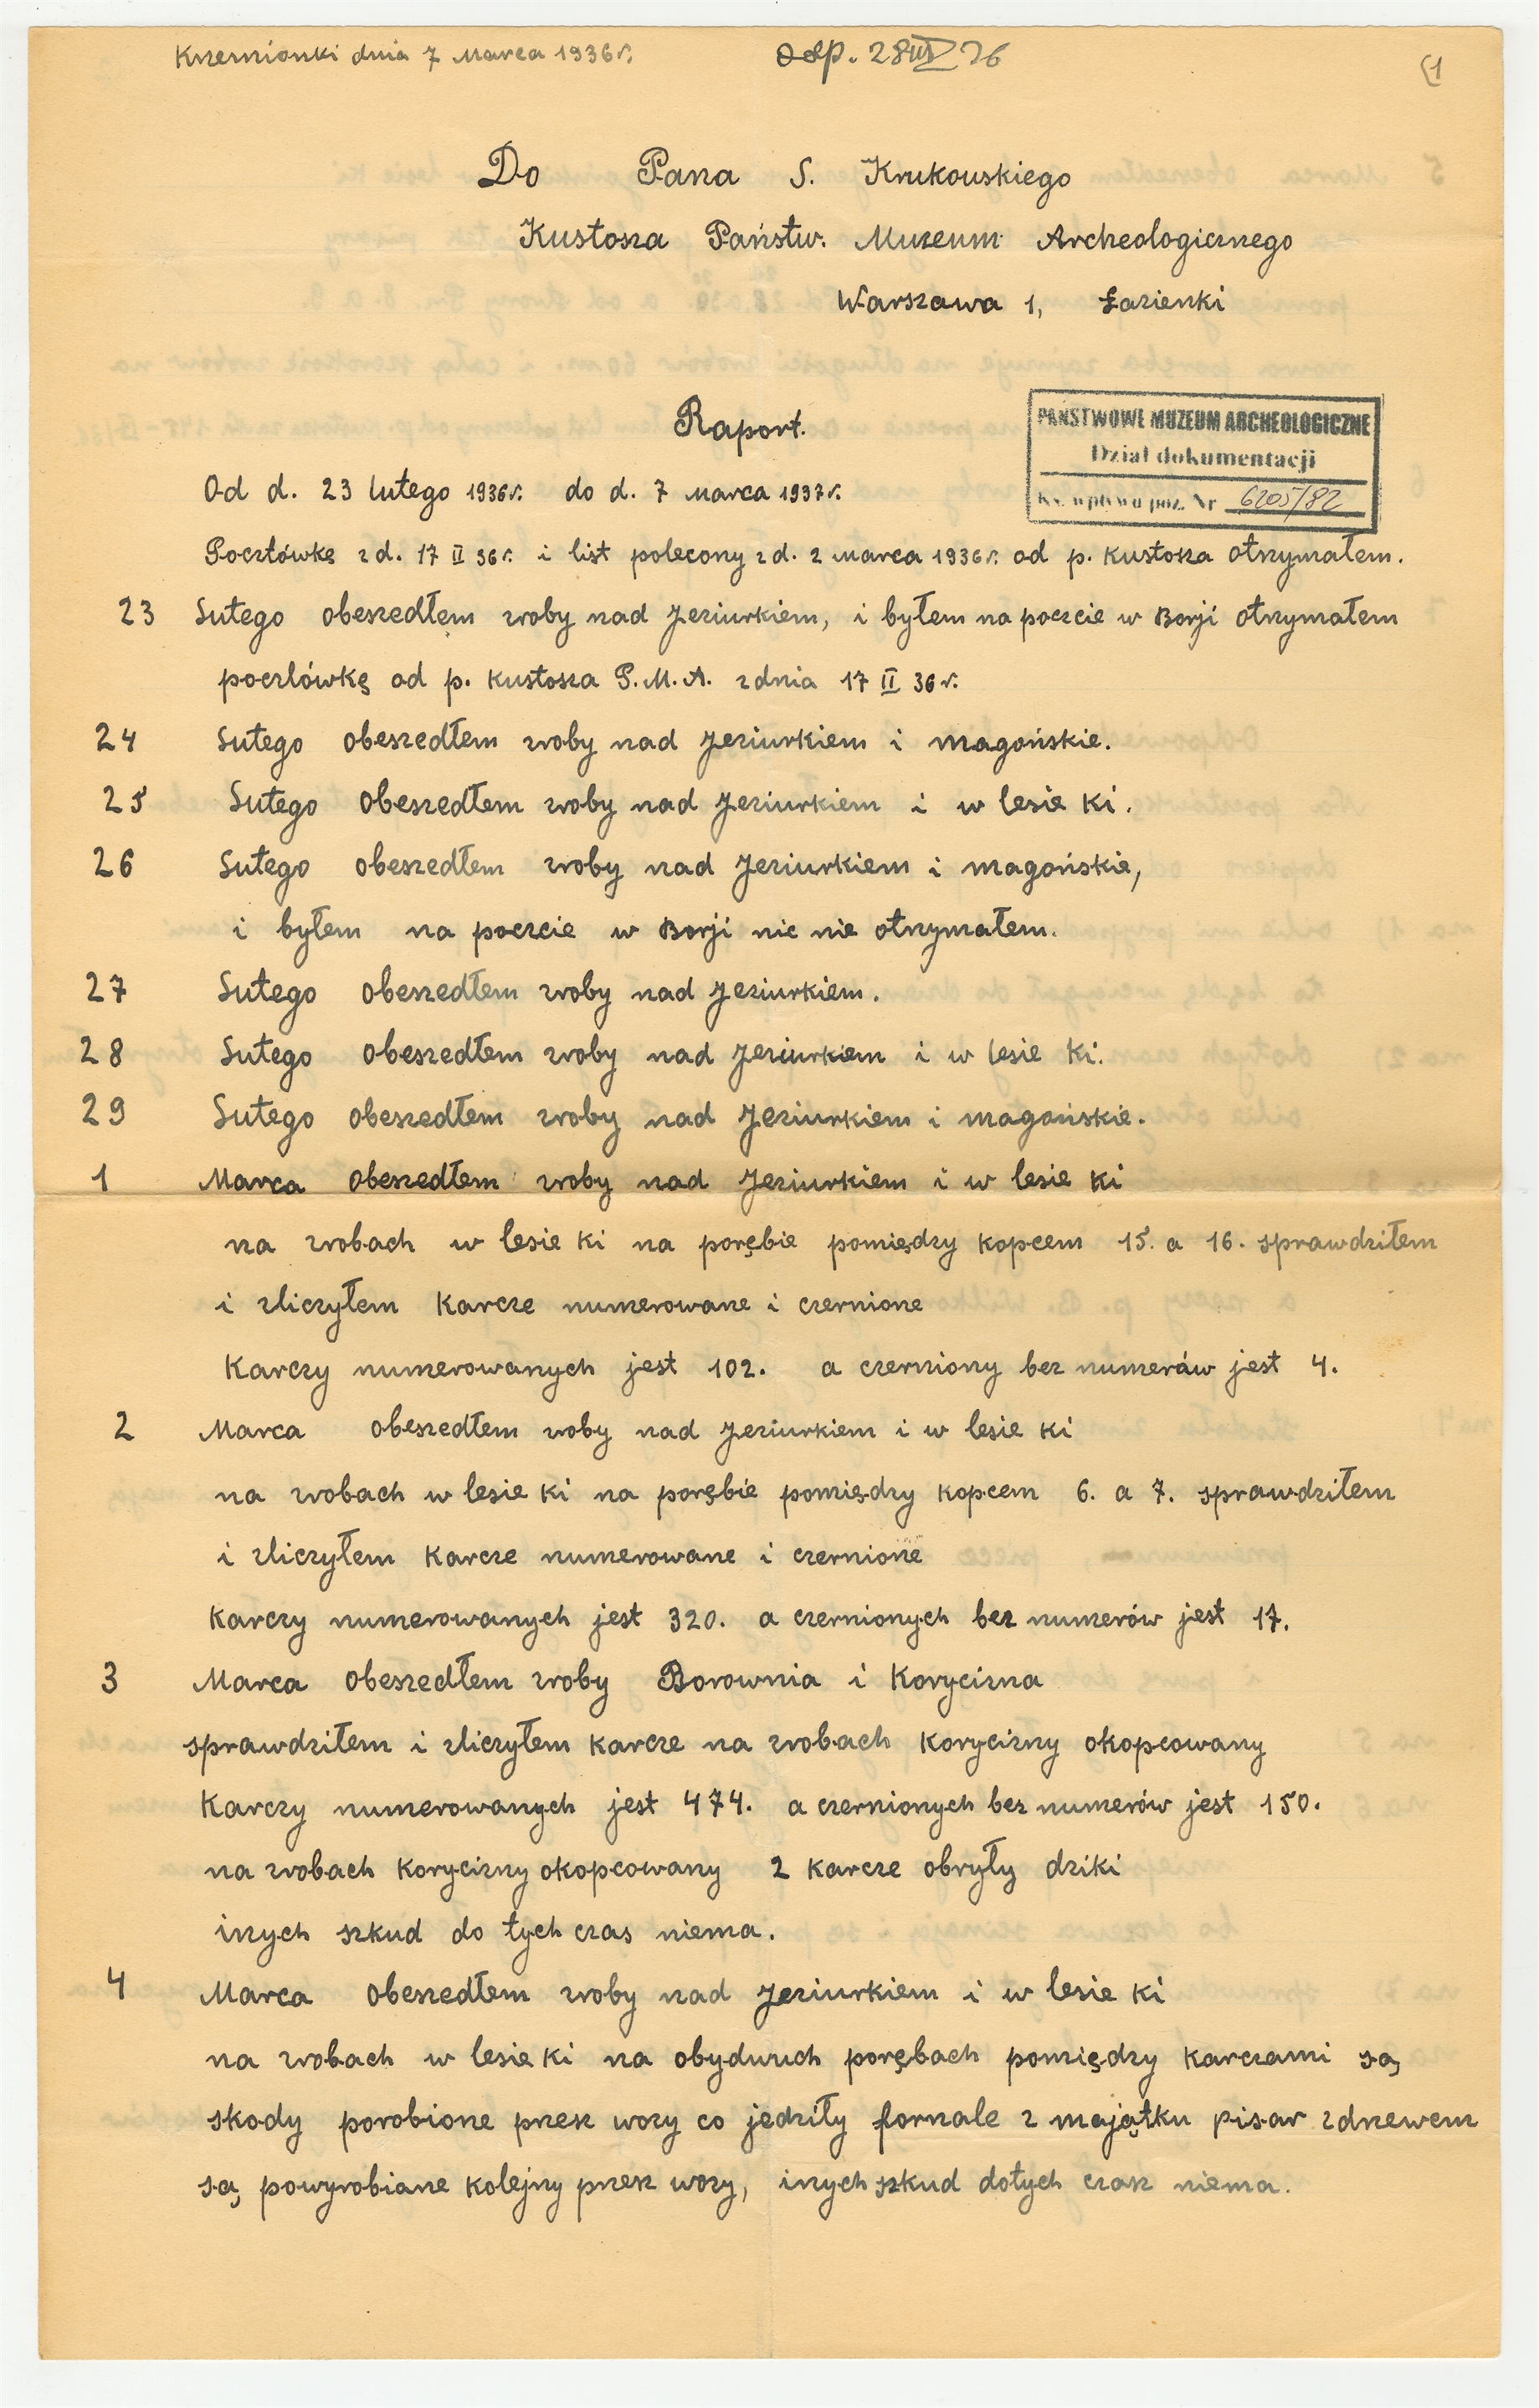 Krzemionki dnia 7 Marca 1936 r. odp. 28 III 36
Do Pana S. Krukowskiego
Kustosza Państw. Muzeum Archeologicznego
Warszawa 1, Łazienki
Raport.
PAŃSTWOWE MUZEUM ARCHEOLOGICZNE
Dział dokumentacji
Ks. wpływu poz. Nr 6205/82
Od d. 23 lutego 1936 r. do d. 7 Marca 1937 r.
Pocztówkę z d. 17 II 36 r. i list polecony z d. 2 Marca 1936 r. od p. kustosza otrzymałem.
23 Lutego obeszedłem zroby nad Jeziurkiem, i byłem na poczcie w Borji otrzymałem
pocztówkę od p. kustosza P.M.A. z dnia 17 II 36 r.
24 Lutego obeszedłem zroby nad Jeziurkiem i magońskie.
25 Lutego obeszedłem zroby nad Jeziurkiem i w lesie ki.
26 Lutego obeszedłem zroby nad Jeziurkiem i magońskie,
i byłem na poczcie w Borji nic nie otrzymałem.
27 Lutego obeszedłem zroby nad Jeziurkiem.
28 Lutego obeszedłem zroby nad Jeziurkiem i w lesie ki.
29 Lutego obeszedłem zroby nad Jeziurkiem i magońskie.
1 Marca obeszedłem zroby nad Jeziurkiem i w lesie ki
na zrobach w lesie ki na porębie pomiędzy kopcem 15. a 16. sprawdziłem
i zliczyłem karcze numerowane i czernione
Karczy numerowanych jest 102. a czerniony bez numeráw jest 4.
2 Marca obeszedłem zroby nad Jeziurkiem i w lesie ki
na zrobach w lesie ki na porębie pomiędzy kopcem 6. a 7. sprawdziłem
i zliczyłem karcze numerowane i czernione
Karczy numerowanych jest 320. a czernionych bez numerów jest 17.
3 Marca obeszedłem zroby Borownia i Korycizna
sprawdziłem i zliczyłem karcze na zrobach Korycizny okopcowany
Karczy numerowanych jest 474. a czernionych bez numerów jest 150.
na zrobach Korycizny okopcowany 2 karcze obryły dziki
inych szkud do tych czas niema.
4 Marca obeszedłem zroby nad Jeziurkiem i w lesie ki
na zrobach w lesie ki na obydwuch porębach pomiędzy karczami są
skody porobione przez wozy co jedziły fornale z majątku pisar zdrzewem
są powyrobiane kolejny przez wozy, inych szkud dotych czas niema.